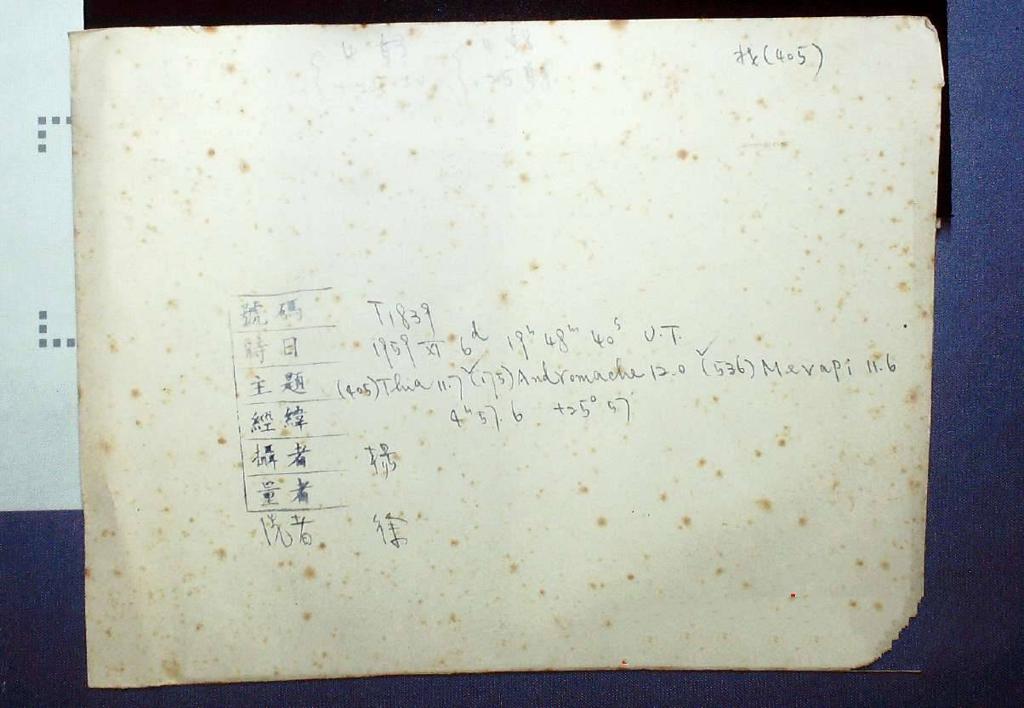 找(405)
號碼 T1839
時日 1959 XI 6d 19h 48m 40s U.T.
主題 (405)Thia 11.7 (175)Andromache 12.0 (536)Merapi 11.6
經緯 4h 57.6 +25° 57'
攝者
量者
洗者 徐